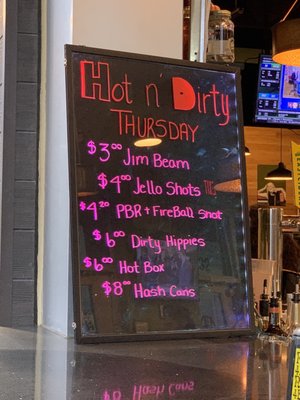 Hot n' Dirty
THURSDAY
$3⁰⁰ Jim Beam
$4⁰⁰ Jello Shots !!!
$4²⁰ PBR + FireBall Shot
$6⁰⁰ Dirty Hippies
$6⁰⁰ Hot Box
$8⁰⁰ Hash Cans